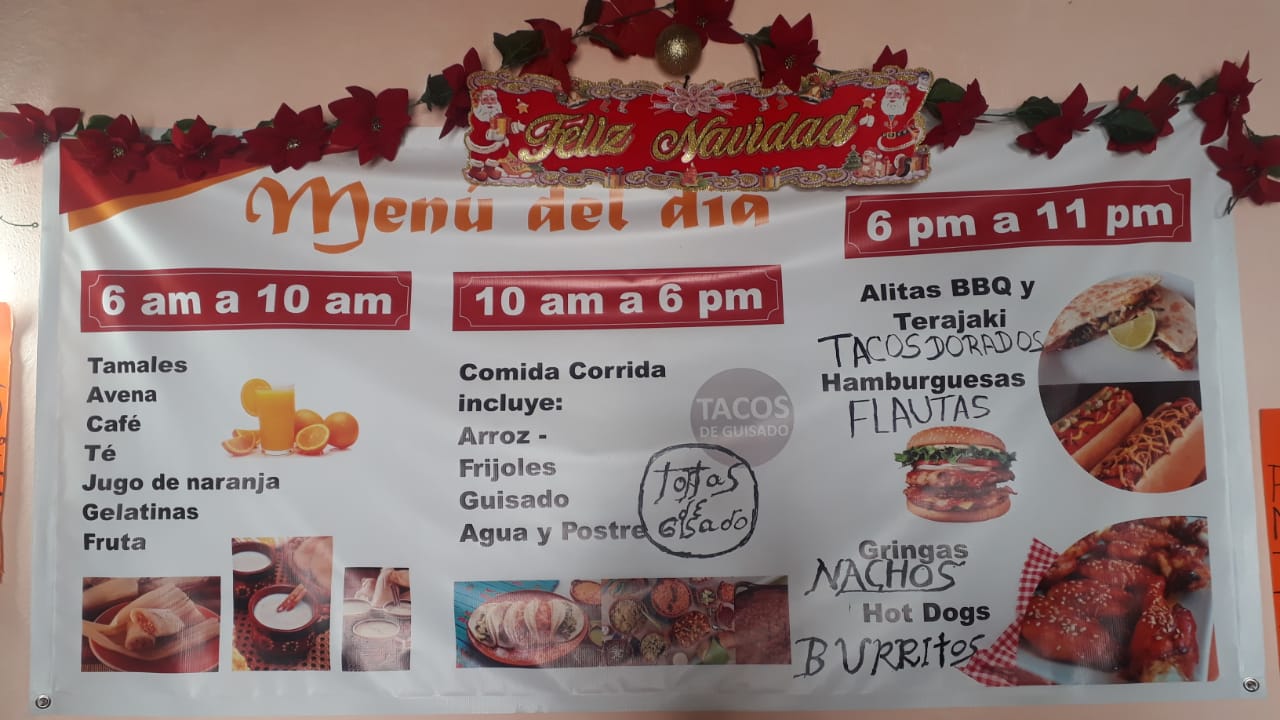 Feliz Navidad
Menú del día
6 am a 10 am
Tamales
Avena
Café
Té
Jugo de naranja
Gelatinas
Fruta
10 am a 6 pm
Comida Corrida
incluye:
Arroz -
Frijoles
Guisado
Agua y Postre
TACOS
DE GUISADO
tortas
de
Gisado
6 pm a 11 pm
Alitas BBQ y
Terajaki
TACOS DORADOS
Hamburguesas
FLAUTAS
Gringas
NACHOS
Hot Dogs
BURRITOS